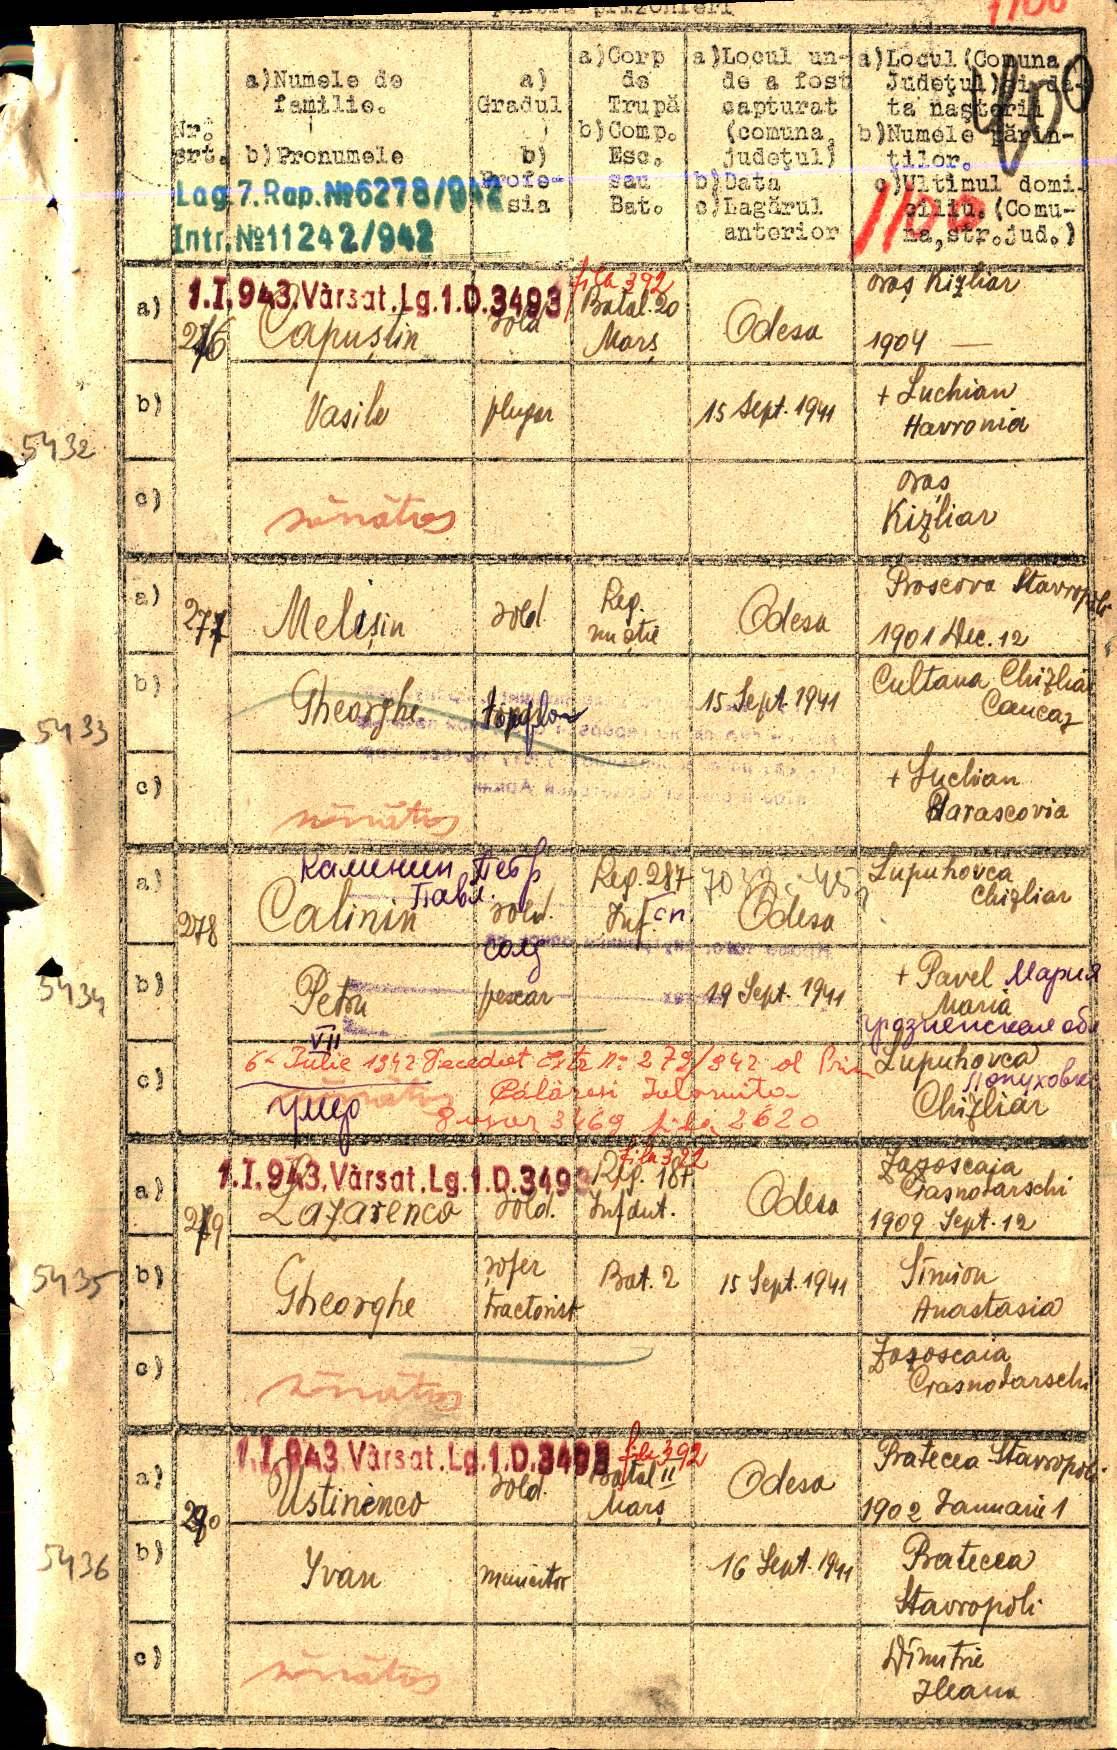 pentru prizonieri
1100
Nr.
srt.
a)Numele de
familie.
b)Pronumele
a)
Gradul
b)
Profe-
sia
a)Corp
de
Trupă
b)Comp.
Esc.
sau
Bat.
a)Locul un-
de a fost
capturat
(comuna,
judeţul)
b)Data
c)Lagărul
anterior
a)Locul(Comuna,
Judeţul)şi da-
ta naşterii
b)Numele părin-
ţilor.
c)Ultimul domi-
ciliu.(Comu-
na,str.jud.)
400
1100
Lag.7.Rap.№6278/942
Intr.№11242/942
1.I.943.Vărsat.Lg.1.D.3493
fila 392
5432
276
a)
Capuştin
sold
Batal.20
Marş
Odesa
oraş Kizliar
1904 —
b)
Vasile
plugar
15 Sept. 1941
+ Luchian
Havronia
c)
sănătos
oraş
Kizliar
5433
277
a)
Melişin
sold.
Reg.
nu ştie
Odesa
Proscova Stavropoli
1901 Dec. 12
b)
Gheorghe
15 Sept. 1941
Cultana Chizliar
Caucaz
c)
sănătos
+ Luchian
Parascovia
5434
278
Калинин Петр
Павл.
a)
Calinin
sold.
солд
Reg. 287
Inf. сп
Odesa
Lupuhovca
Chizliar
b)
Petru
pescar
19 Sept. 1941
+ Pavel Мария
Maria
грозненская обл
VII
c)
6- Iulie 1942 Decedat Extr № 279/942 al Prim
Călăraşi Ialomiţa
sănătos
умер
Dosar 3469 fila 2620
Lupuhovca
Лопуховка
Chizliar
1.I.943.Vărsat.Lg.1.D.3493
5435
279
a)
Lazarenco
sold.
Reg. 187
Inf dut.
Odesa
Zazoscaia
Crasnodarschi
1909 Sept. 12
b)
Gheorghe
şofer
tractorist
Bat. 2
15 Sept. 1941
Simion
Anastasia
c)
sănătos
Zazoscaia
Crasnodarschi
1.I.943.Vărsat.Lg.1.D.3493
fila 392
5436
280
a)
Ustinenco
sold.
Batal II
Marş
Odesa
Pratecea Stavropoli
1902 Ianuarie 1
b)
Yvan
muncitor
16 Sept. 1941
Pratecea
Stavropoli
c)
sănătos
Dimitrie
Ileana